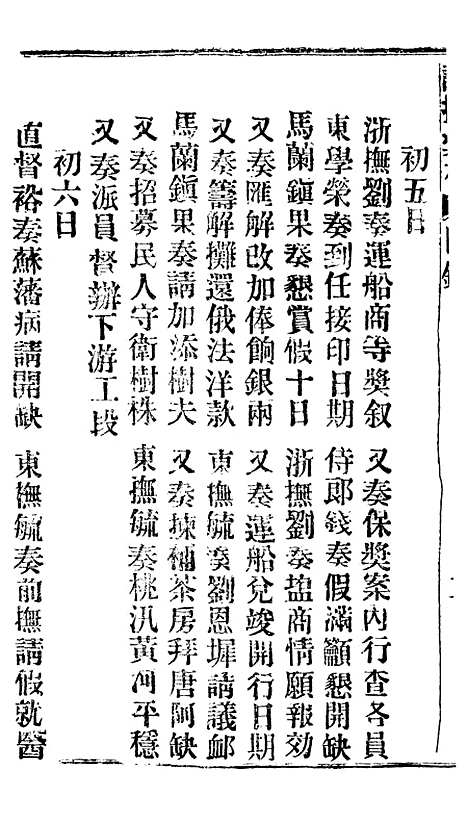 初五日
浙撫劉奏運船商等獎叙　又奏保獎案內行查各員
東學榮奏到任接印日期　侍郎錢奏假滿籲懇開缺
馬蘭鎮果奏懇賞假十日　浙撫劉奏鹽商情願報効
又奏匯解改加俸餉銀兩　又奏運船兌竣開行日期
又奏籌解攤還俄法洋款　東撫毓奏劉恩墀請議卹
馬蘭鎮果奏請加添樹夫　又奏揀補茶房拜唐阿缺
又奏招募民人守衛樹株　東撫毓奏桃汛黃河平穩
又奏派員督辦下游工段
初六日
直督裕奏蘇藩病請開缺　東撫毓奏前撫請假就醫